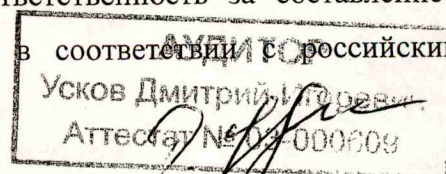 ответственность за составление
в соответствии с российским
АУДИТОР
Усков Дмитрий Игоревич
Аттестат № 03-000609